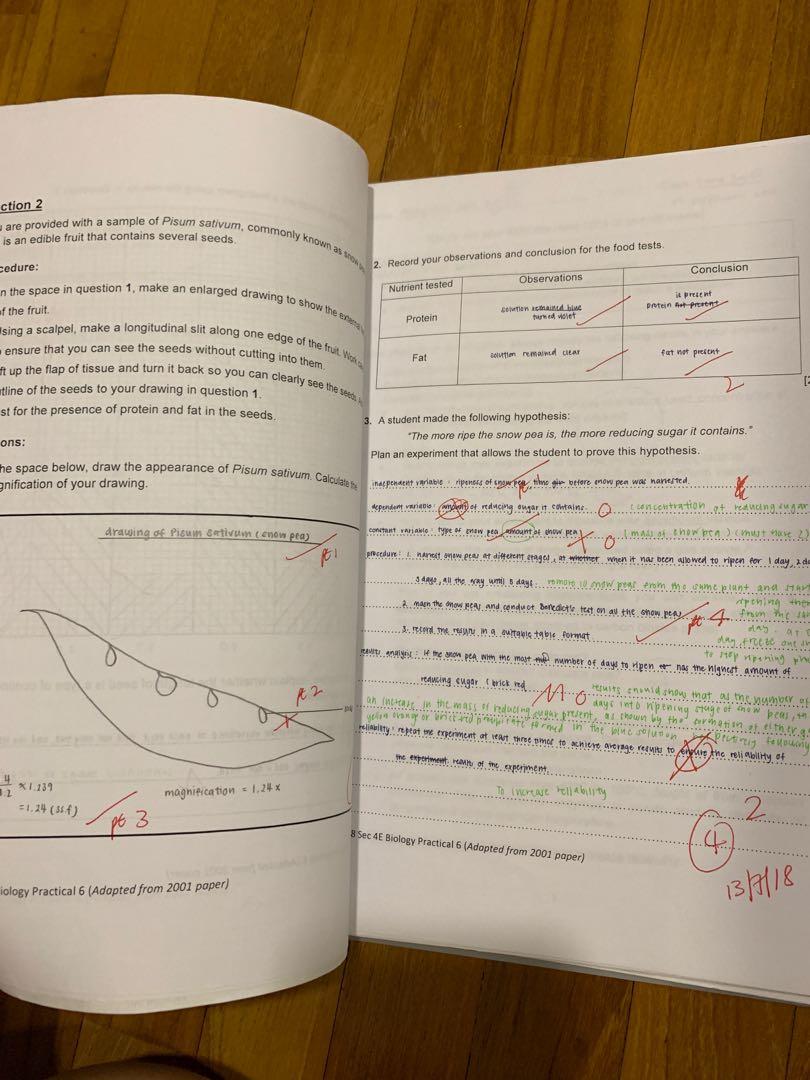 ction 2
are provided with a sample of Pisum sativum, commonly known as snow
is an edible fruit that contains several seeds.
cedure:
n the space in question 1, make an enlarged drawing to show the external
of the fruit.
sing a scalpel, make a longitudinal slit along one edge of the fruit. Work
ensure that you can see the seeds without cutting into them.
ft up the flap of tissue and turn it back so you can clearly see the seeds.
utline of the seeds to your drawing in question 1.
st for the presence of protein and fat in the seeds.
ons:
he space below, draw the appearance of Pisum sativum. Calculate the
gnification of your drawing.
drawing of Pisum Sativum (snow pea)
pt 1
pt 2
4
≈ 1.239
= 1.24 (3s.f)
magnification = 1.24x
pt 3
iology Practical 6 (Adapted from 2001 paper)
2. Record your observations and conclusion for the food tests.
Nutrient tested Observations Conclusion
Protein solution remained blue turned violet protein not present is present
Fat solution remained clear fat not present
2
3. A student made the following hypothesis:
"The more ripe the snow pea is, the more reducing sugar it contains."
Plan an experiment that allows the student to prove this hypothesis.
independent variable : ripeness of snow pea, time before snow pea was harvested.
dependent variable : amount of reducing sugar it contains. 0 (concentration of reducing sugar
constant variable : type of snow pea, amount of snow pea 0 (mass of snow pea) (must have 2)
procedure : 1. harvest snow peas at different stages, at whether when it has been allowed to ripen for 1 day, 2 da
3 days, all the way until 5 days. remove 10 snow peas from the same plant and start
ripening them
2. mash the snow peas and conduct Benedict's test on all the snow peas. from the
pt 4
day
3. record the results in a suitable table format day, freeze one
to stop ripening
results analysis : if the snow pea with the most number of days to ripen has the highest amount of
reducing sugar (brick red 0 results should show that as the number of
days into ripening stage of snow peas,
an increase in the mass of reducing sugar present, as shown by the formation of either
yellow orange or brick-red precipitate formed in the blue solution following
reliability : repeat the experiment at least three times to achieve average results to ensure the reliability of
the experiment. results of the experiment.
To increase reliability
2
4
8 Sec 4E Biology Practical 6 (Adapted from 2001 paper)
13/7/18